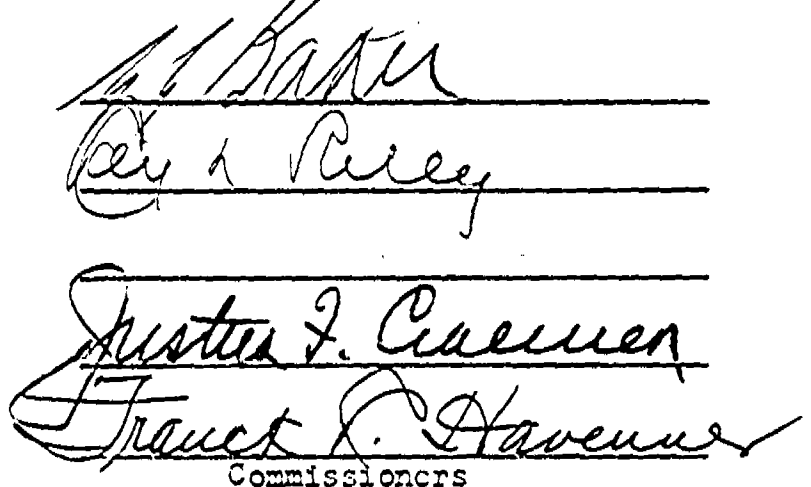 Baker
Ray L Riley
Justus F. Craemer
Franck R. Havenner
Commissioners